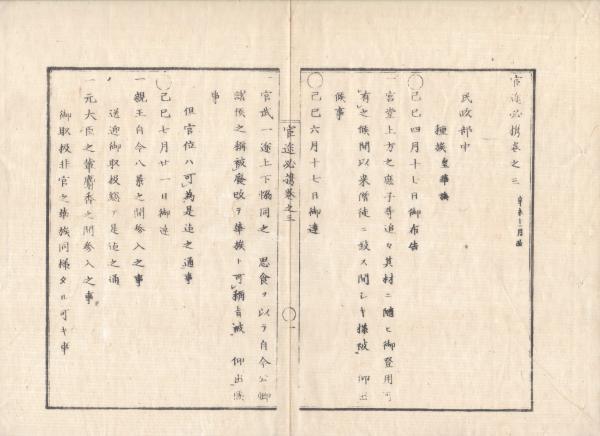 官途必携巻之三
民政部中
種族 皇華族
〇己巳四月十七日御布告
一宮堂上方之庶子等追々其材ニ随ヒ御登用可
有之候間以来僧徒ニ致ス間シキ様被 仰出
候事
〇己巳六月十七日御達
官途必携巻之三
一
一官武一途上下協同之 思食ヲ以テ自今公卿
諸侯之稱被廃改テ華族ト可稱旨被 仰出候
事
但官位ハ可為是迄之通事
〇己巳七月廿一日御達
一親王自今八景之間参入之事
送迎御取扱総テ是迄之通
一元大臣之輩麝香之間参入之事
御取扱非官之華族同様タル可キ事